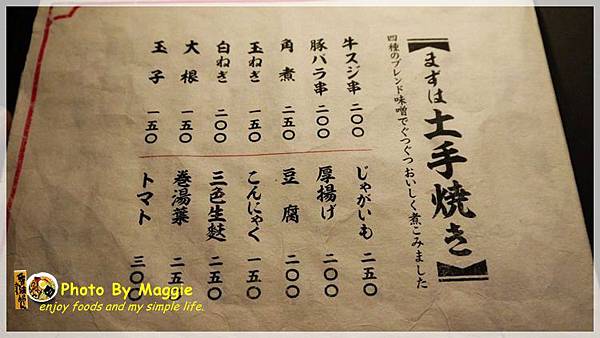 【まずは土手焼き】
四種のブレンド味噌でぐつぐつおいしく煮こみました
牛スジ串 二〇〇
豚バラ串 二〇〇
角煮 二五〇
玉ねぎ 一五〇
白ねぎ 二〇〇
大根 一五〇
玉子 一五〇
じゃがいも 二五〇
厚揚げ 二〇〇
豆腐 二〇〇
こんにゃく 一五〇
三色生麩 二五〇
巻湯葉 二五〇
トマト 三〇〇
Photo By Maggie
enjoy foods and my simple life.